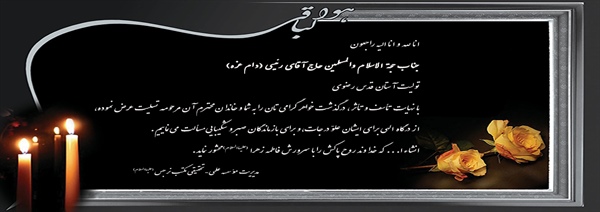 هو الباقی
انا لله و انا الیه راجعون
جناب حجة الاسلام والمسلمین حاج آقای رئیسی (دام عزه)
تولیت آستان قدس رضوی
با نهایت تاسف و تاثر، درگذشت خواهر گرامی تان را به شما و خاندان محترم آن مرحومه تسلیت عرض نموده،
از درگاه الهی برای ایشان علو درجات، و برای بازماندگان صبر و شکیبایی مسالت می نماییم.
انشاء ا... که خداوند روح پاکش را با سرورش فاطمه زهرا (علیهاالسلام) محشور نماید.
مدیریت مؤسسه علمی-تحقیقی مکتب نرجس (علیهاالسلام)